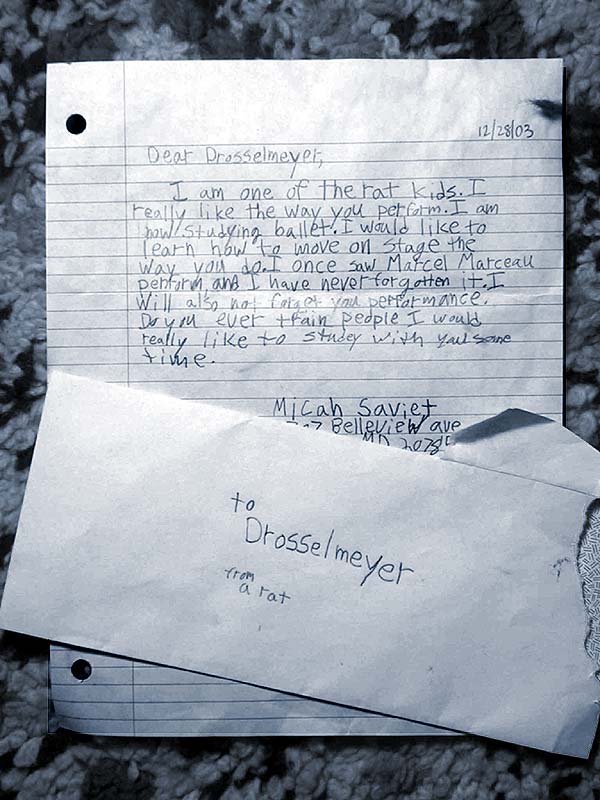 12/28/03
Dear Drosselmeyer,
I am one of the rat kids. I
really like the way you perform. I am
now studying ballet. I would like to
learn how to move on stage the
way you do. I once saw Marcel Marceau
perform and I have never forgotten it. I
will also not forget you performance.
Do you ever train people I would
really like to studey with you some
time.
Micah Saviet
Belleview ave
MD
to
Drosselmeyer
from
a rat